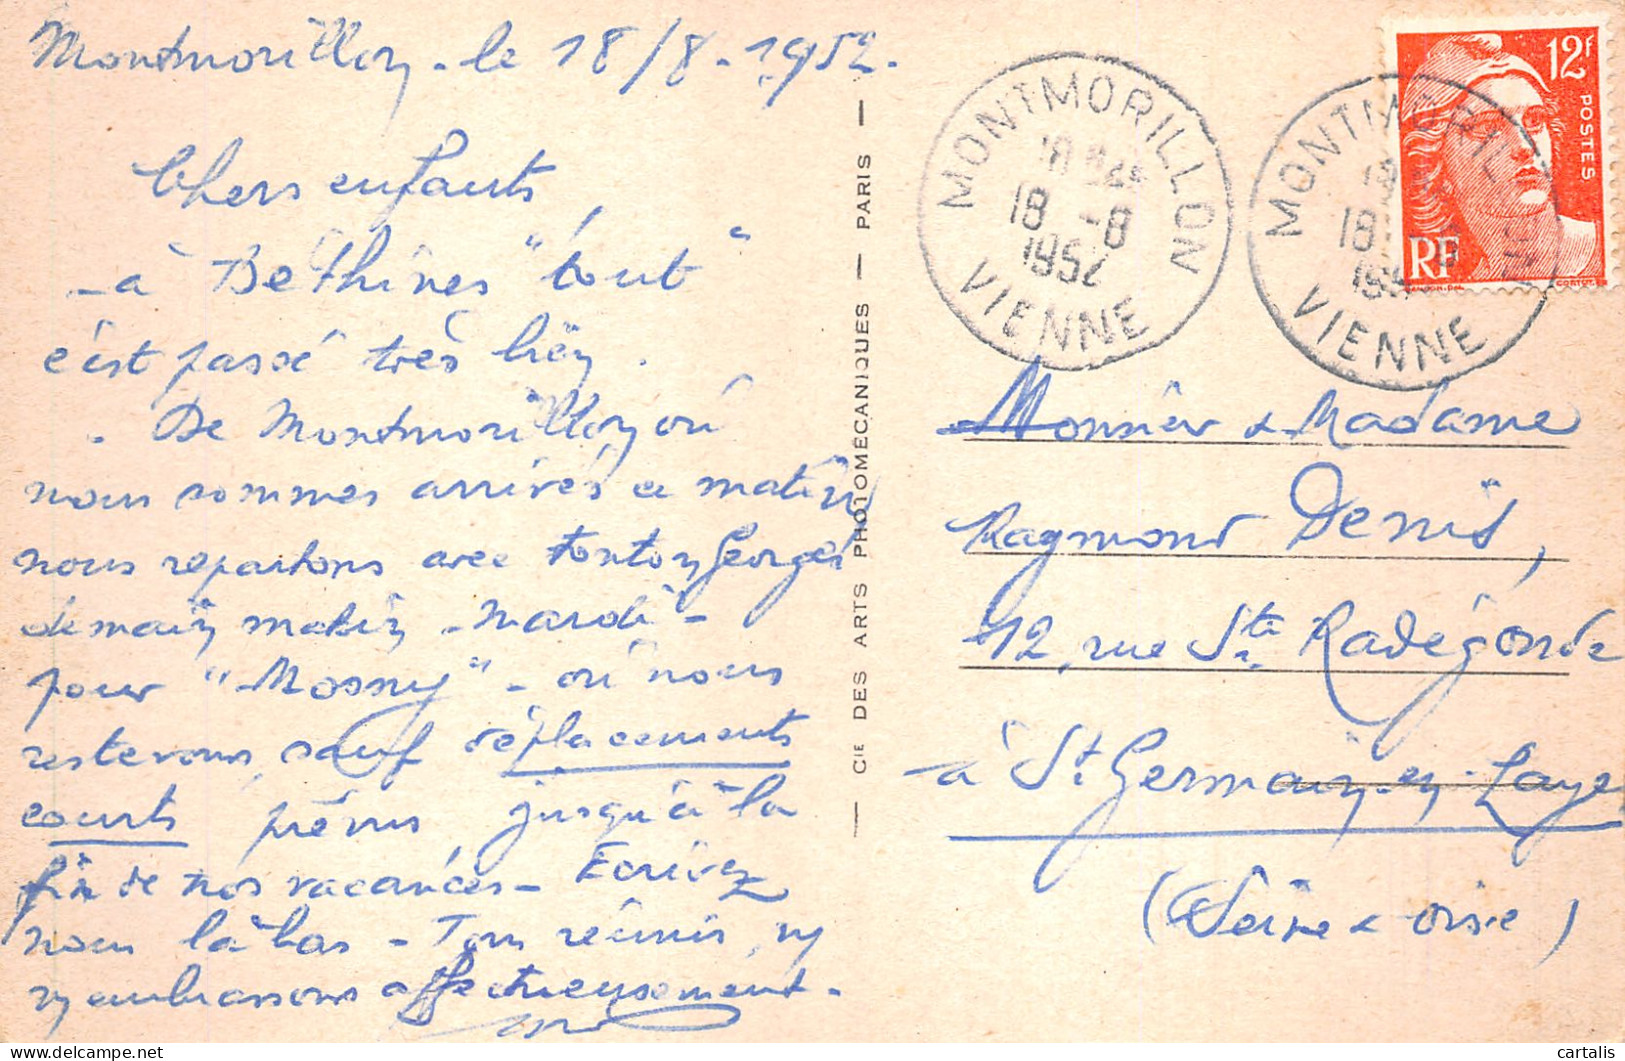 Montmorillon - le 18/8 - 1952.
Chers enfants,
- à Béthines "tout"
c'est passé très bien.
- De Montmorillon où
nous sommes arrivés ce matin
nous repartons avec tonton Georges
demain matin - mardi -
pour "Mosny" - où nous
resterons, sauf déplacements
courts prévus jusqu'à la
fin de nos vacances - Ecrivez
nous là bas - Tous réunis, ns
vs embrassons affectueusement -
CIE DES ARTS PHOTOMÉCANIQUES — PARIS
MONTMORILLON
18
18 -8
1952
VIENNE
MONTMORILLON
18
195
VIENNE
12F
POSTES
RF
Monsieur & Madame
Raymond Denis,
12, rue Ste Radégonde
à St Germain-en-Laye
(Seine & Oise)
cartalis